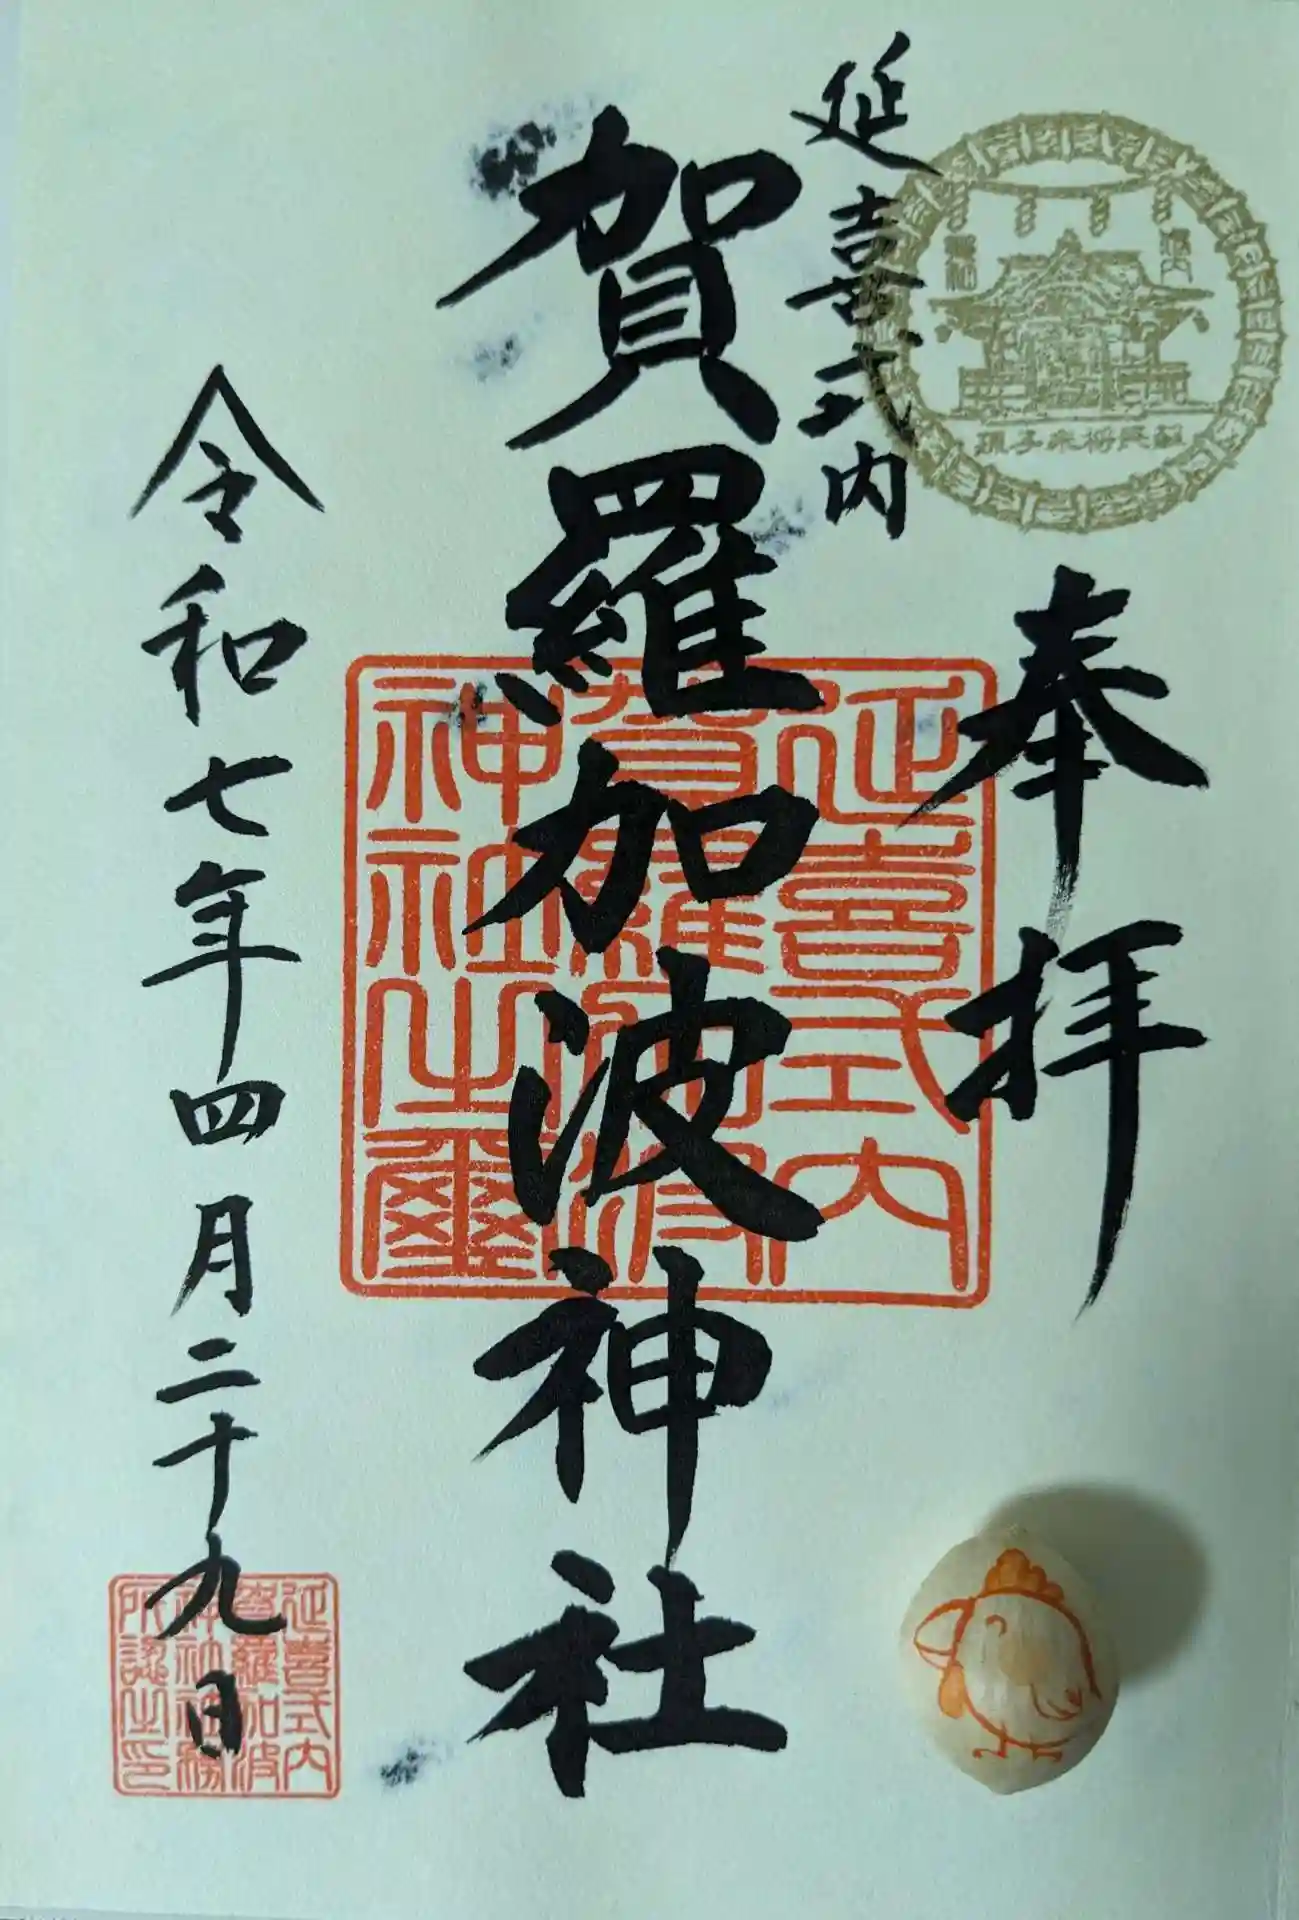 奉拝
延喜式内
賀羅加波神社
令和七年四月二十九日
延喜式内
賀羅加波
神社之璽
延喜式内
賀羅加波
神社神務
所認之印